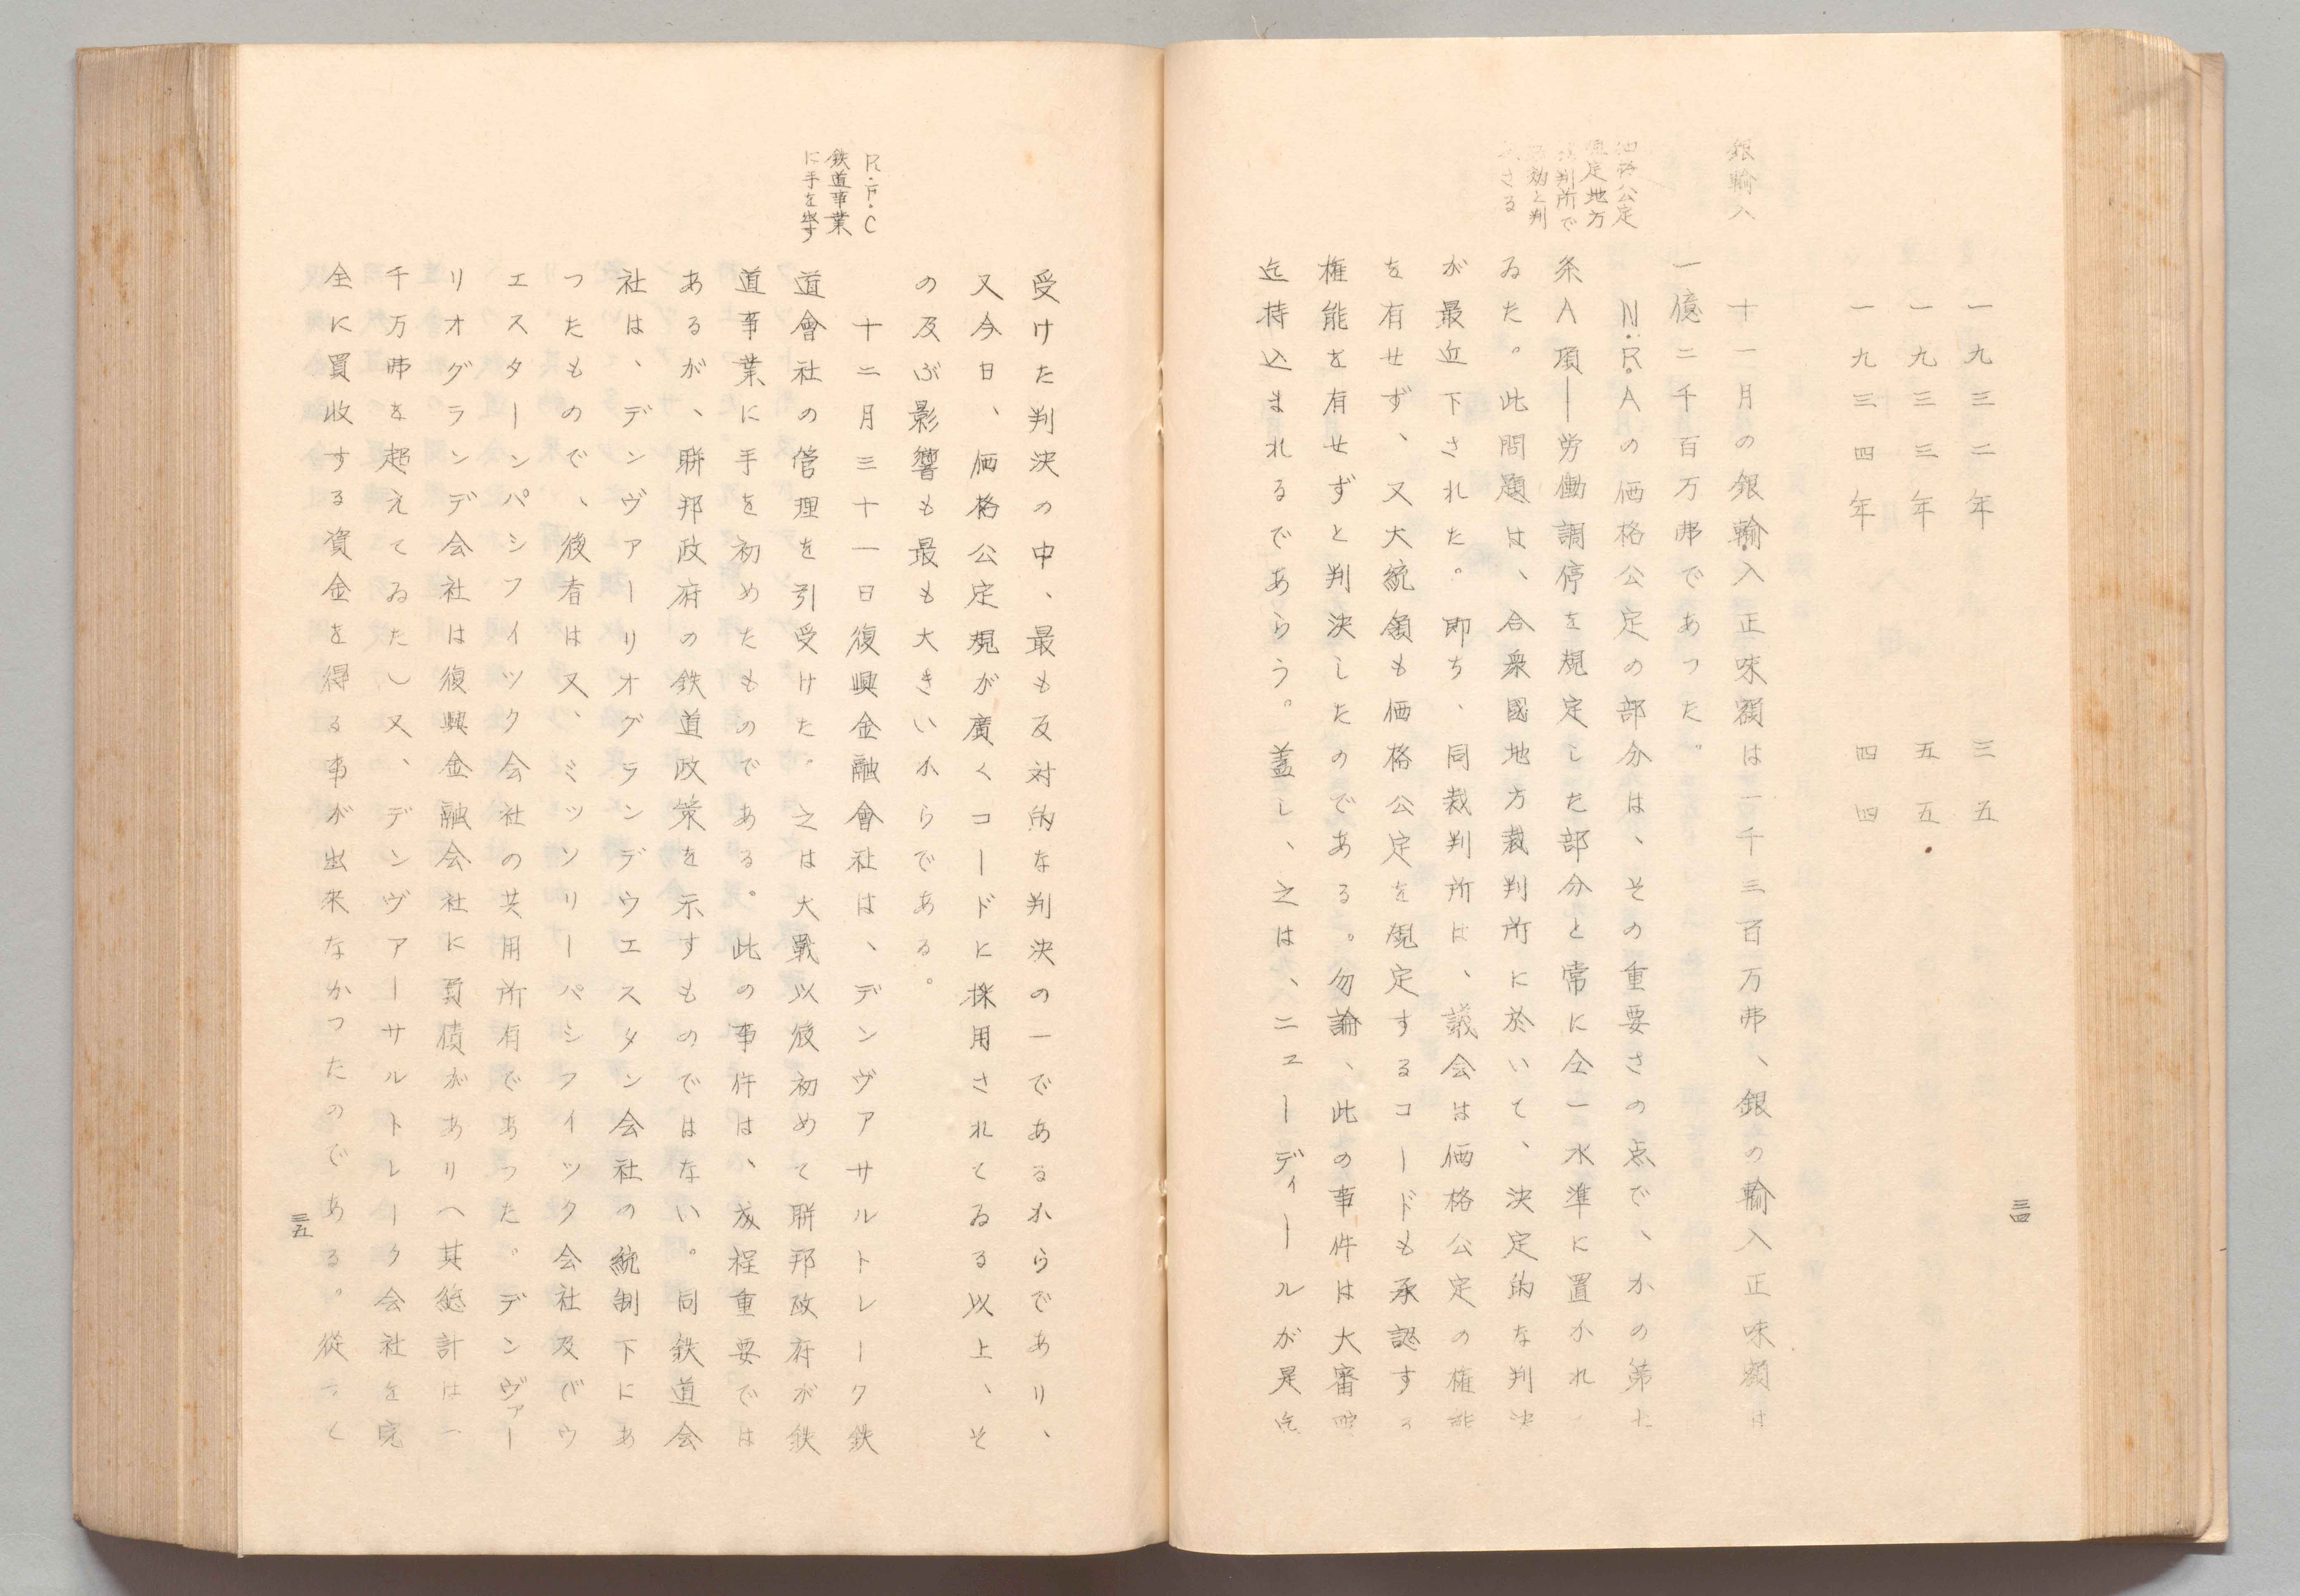 三四
一九三二年　三五
一九三三年　五五
一九三四年　四四
銀輸入
十一月の銀輸入正味額は一千三百万弗、銀の輸入正味額は
一億二千百万弗であつた。
価格公定
規定地方
裁判所で
無効と判
決さる
N.R.Aの価格公定の部分は、その重要さの点で、かの第七
条A項―労働調停を規定した部分と常に仝一水準に置かれて
ゐた。此問題は、合衆國地方裁判所に於いて、決定的な判決
が最近下された。即ち、同裁判所は、議会は価格公定の権能
を有せず、又大統領も価格公定を規定するコードも承認する
権能を有せずと判決したのである。勿論、此の事件は大審院
迄持込まれるであらう。蓋し、之は、ニューディールが是迄
受けた判決の中、最も反対的な判決の一であるからであり、
又今日、価格公定規が廣くコードに採用されてゐる以上、そ
の及ぶ影響も最も大きいからである。
R.F.C
鉄道事業
に手を出す
十二月三十一日復興金融會社は、デンヴァサルトレーク鉄
道會社の管理を引受けた。之は大戰以後初めて聯邦政府が鉄
道事業に手を初めたものである。此の事件は、成程重要では
あるが、聯邦政府の鉄道政策を示すものではない。同鉄道会
社は、デンヴァーリオグランデウエスタン会社の統制下にあ
つたもので、後者は又、ミツソリーパシフイツク会社及びウ
エスターンパシフイツク会社の共用所有であつた。デンヴァー
リオグランデ会社は復興金融会社に負債があり（其総計は一
千万弗を超えてゐた）又、デンヴアーサルトレーク会社を完
全に買收する資金を得る事が出来なかつたのである。従つて
三五